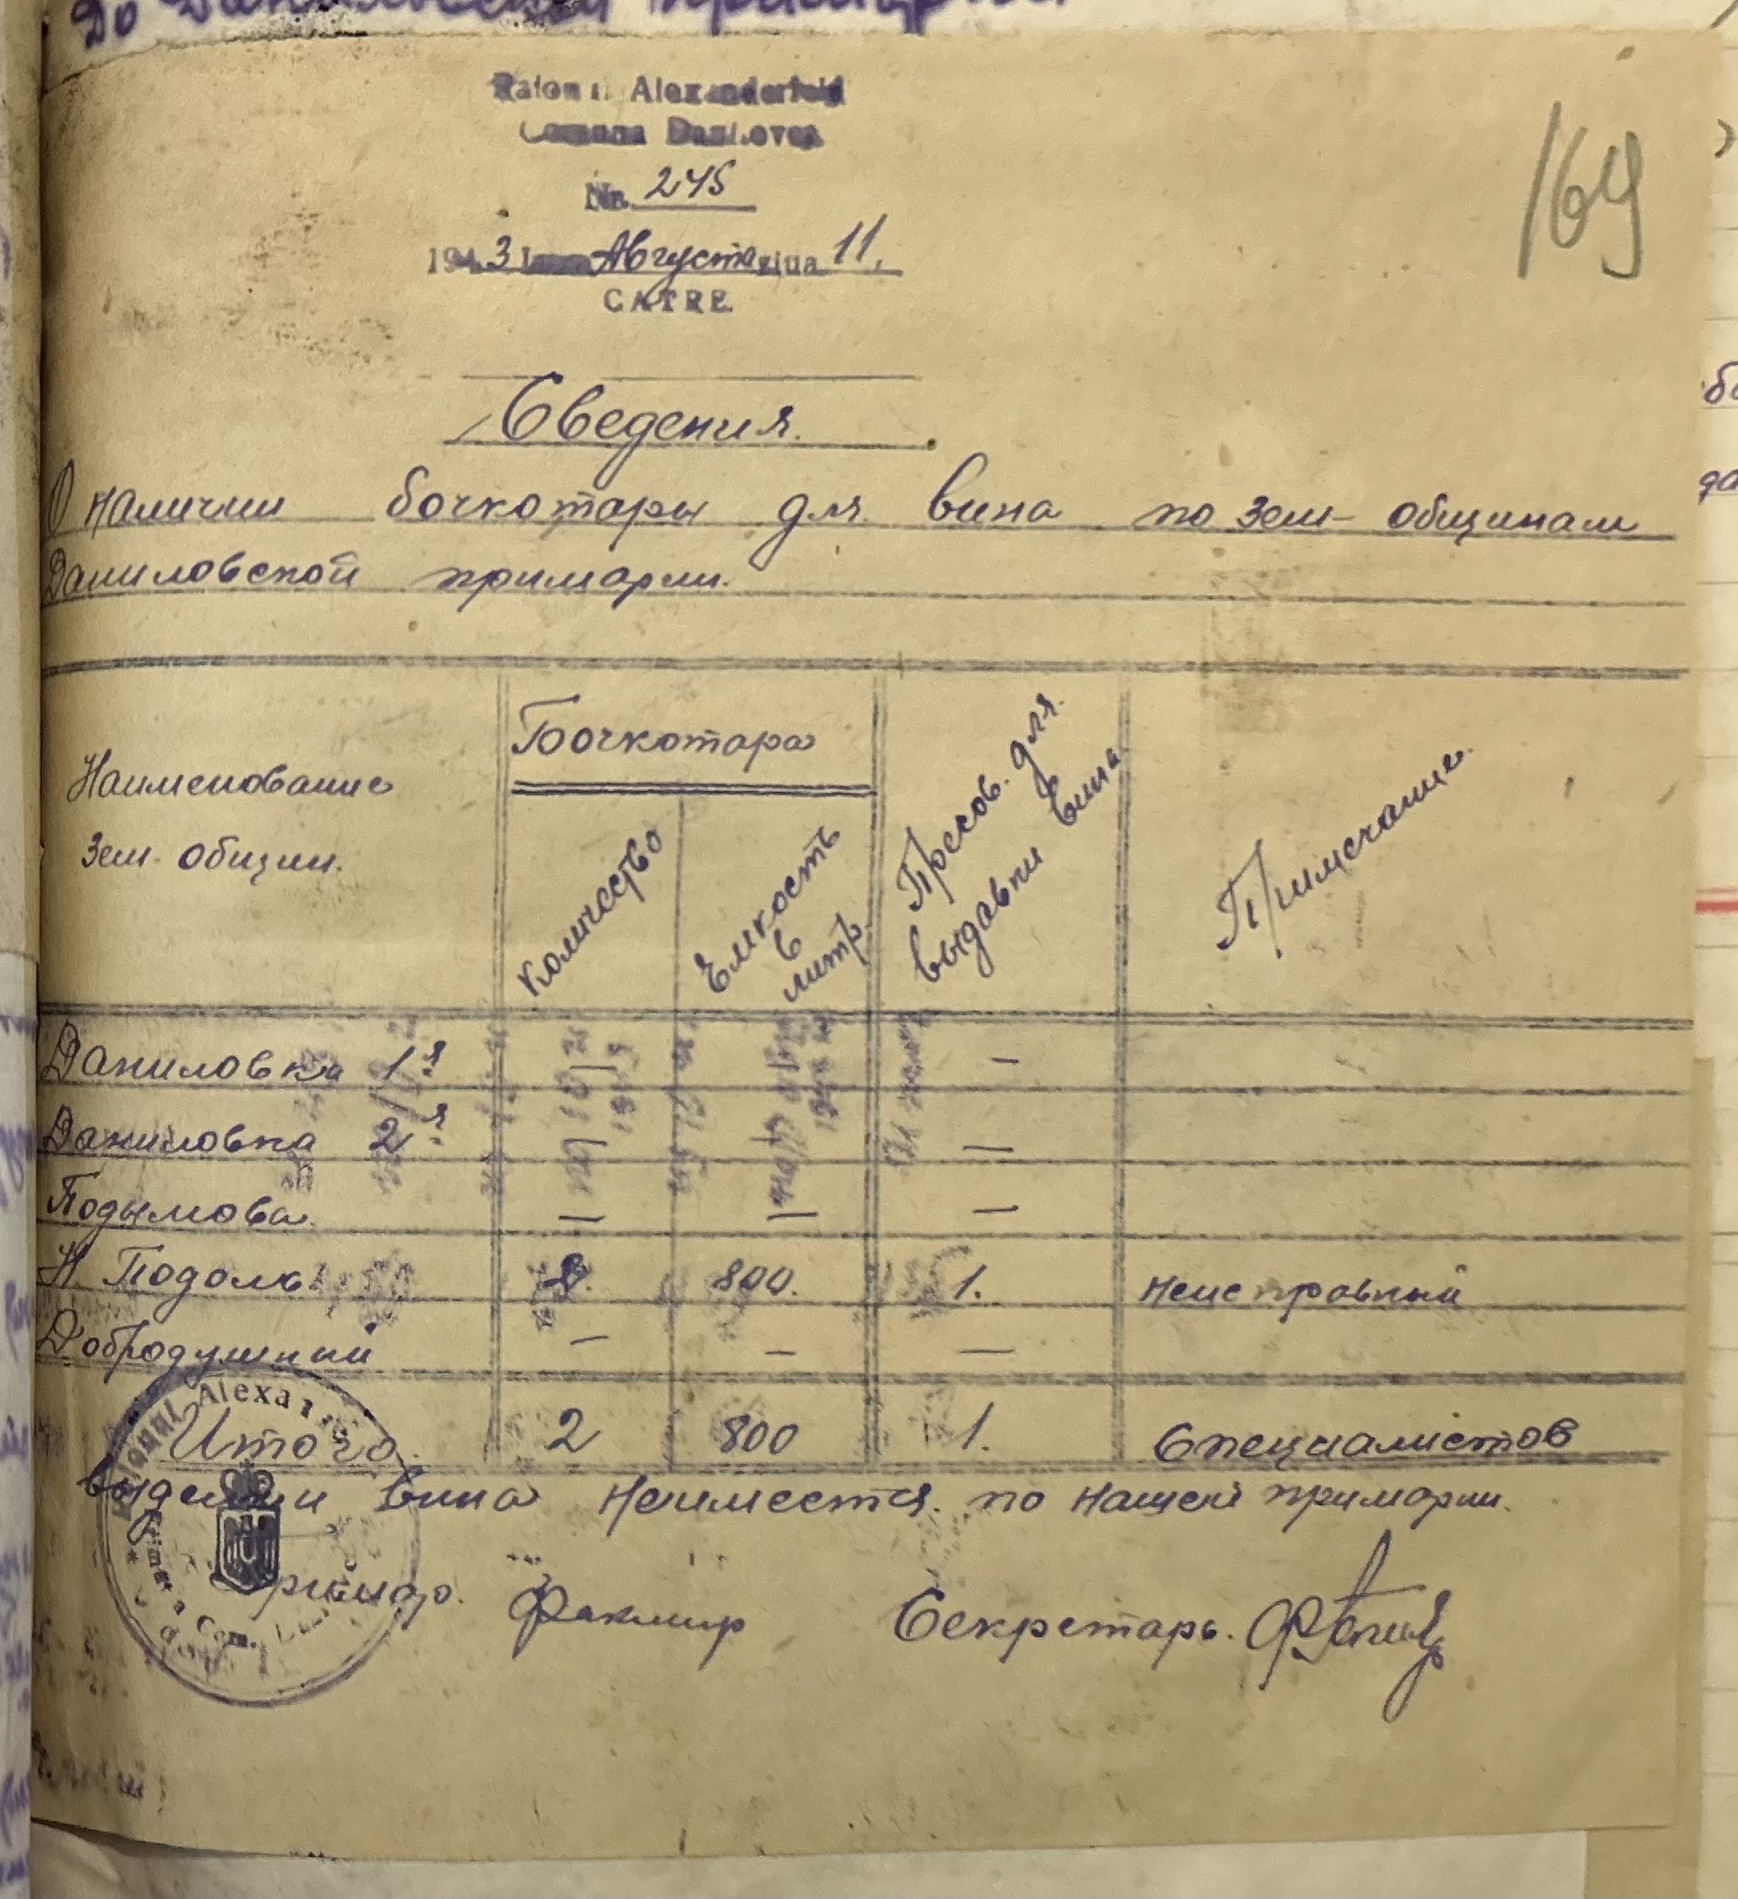 До Даниловской примарии
Raionul Alexanderfeld
Comuna Danilovca
Nr. 245
1943 Luna Августа ziua 11.
CATRE
169
Сведения.
О наличии бочкотары для вина по зем- общинам
Даниловской примарии.
Наименование
зем- общин.
Бочкотара
Количество
Емкость
в
литр.
Пресов. для
выдавки вина.
Примечание.
Даниловка 1я —
Даниловка 2я —
Подымова. — — —
Н Подоль 2. 800. 1. неисправный
Добродушный — — —
Итого. 2 800 1. Специалистов
выделки вина неимеется. по нашей примарии.
Примар. Секретарь.
Raionul Alexan
Primaria Com.